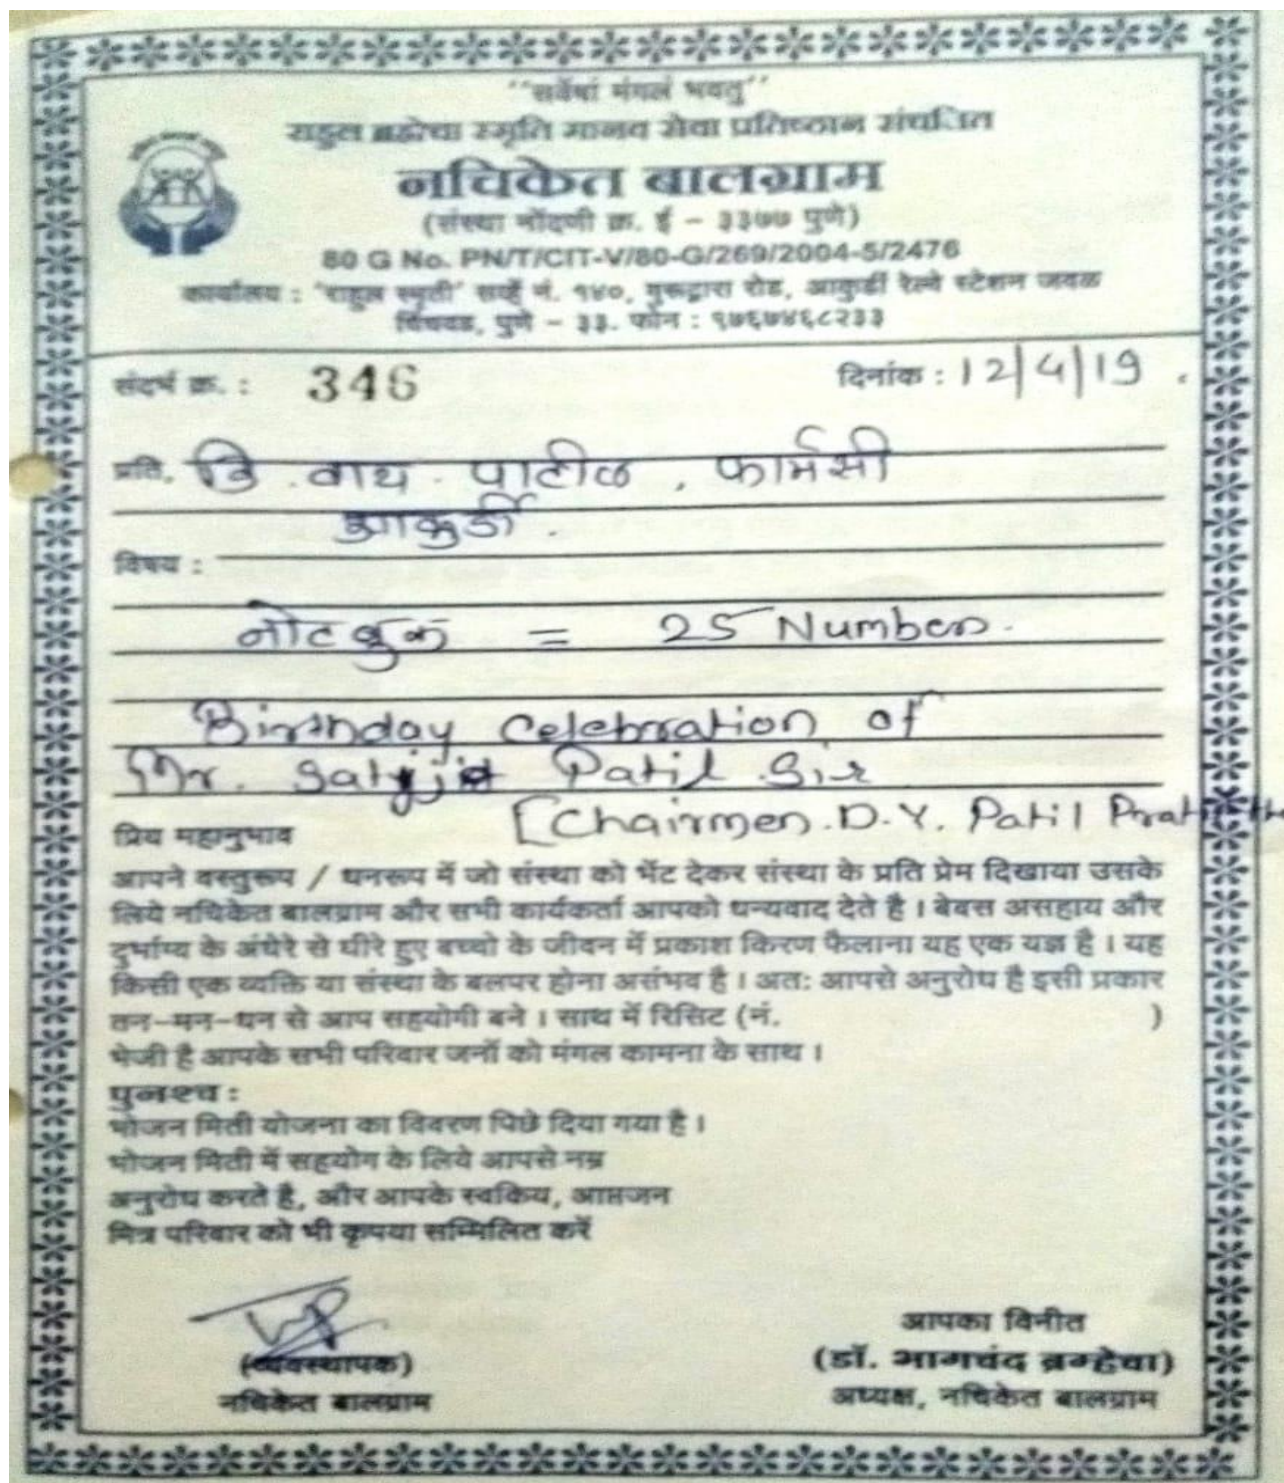 "सर्वेषां मंगलं भवतु"
राहुल ब्रह्मेचा स्मृति मानव सेवा प्रतिष्ठान संचलित
नचिकेत बालग्राम
(संस्था नोंदणी क्र. ई - ३३७७ पुणे)
80 G No. PN/T/CIT-V/80-G/269/2004-5/2476
कार्यालय : 'राहुल स्मृती' सर्व्हे नं. १४०, गुरूद्वारा रोड, आकुर्डी रेल्वे स्टेशन जवळ
चिंचवड, पुणे - ३३. फोन : ९७६७४६८२३३
संदर्भ क्र. : 346 दिनांक : 12/4/19 .
प्रति, डि . वाय . पाटील . फार्मसी
आकुर्डी .
विषय :
नोटबुक = 25 Number.
Birthday Celebration of
Mr. Satyjit Patil Sir
[Chairmen. D. Y. Patil
प्रिय महानुभाव
आपने वस्तुरूप / धनरूप में जो संस्था को भेंट देकर संस्था के प्रति प्रेम दिखाया उसके
लिये नचिकेत बालग्राम और सभी कार्यकर्ता आपको धन्यवाद देते है । बेबस असहाय और
दुर्भाग्य के अंधेरे से घीरे हुए बच्चो के जीवन में प्रकाश किरण फैलाना यह एक यज्ञ है । यह
किसी एक व्यक्ति या संस्था के बलपर होना असंभव है । अतः आपसे अनुरोध है इसी प्रकार
तन-मन-धन से आप सहयोगी बने । साथ में रिसिट (नं. )
भेजी है आपके सभी परिवार जनों को मंगल कामना के साथ ।
पुनश्च :
भोजन मिती योजना का विवरण पिछे दिया गया है ।
भोजन मिती में सहयोग के लिये आपसे नम्र
अनुरोध करते है, और आपके स्वकिय, आप्तजन
मित्र परिवार को भी कृपया सम्मिलित करें
आपका विनीत
(व्यवस्थापक) (डॉ. भागचंद ब्रम्हेचा)
नचिकेत बालग्राम अध्यक्ष, नचिकेत बालग्राम